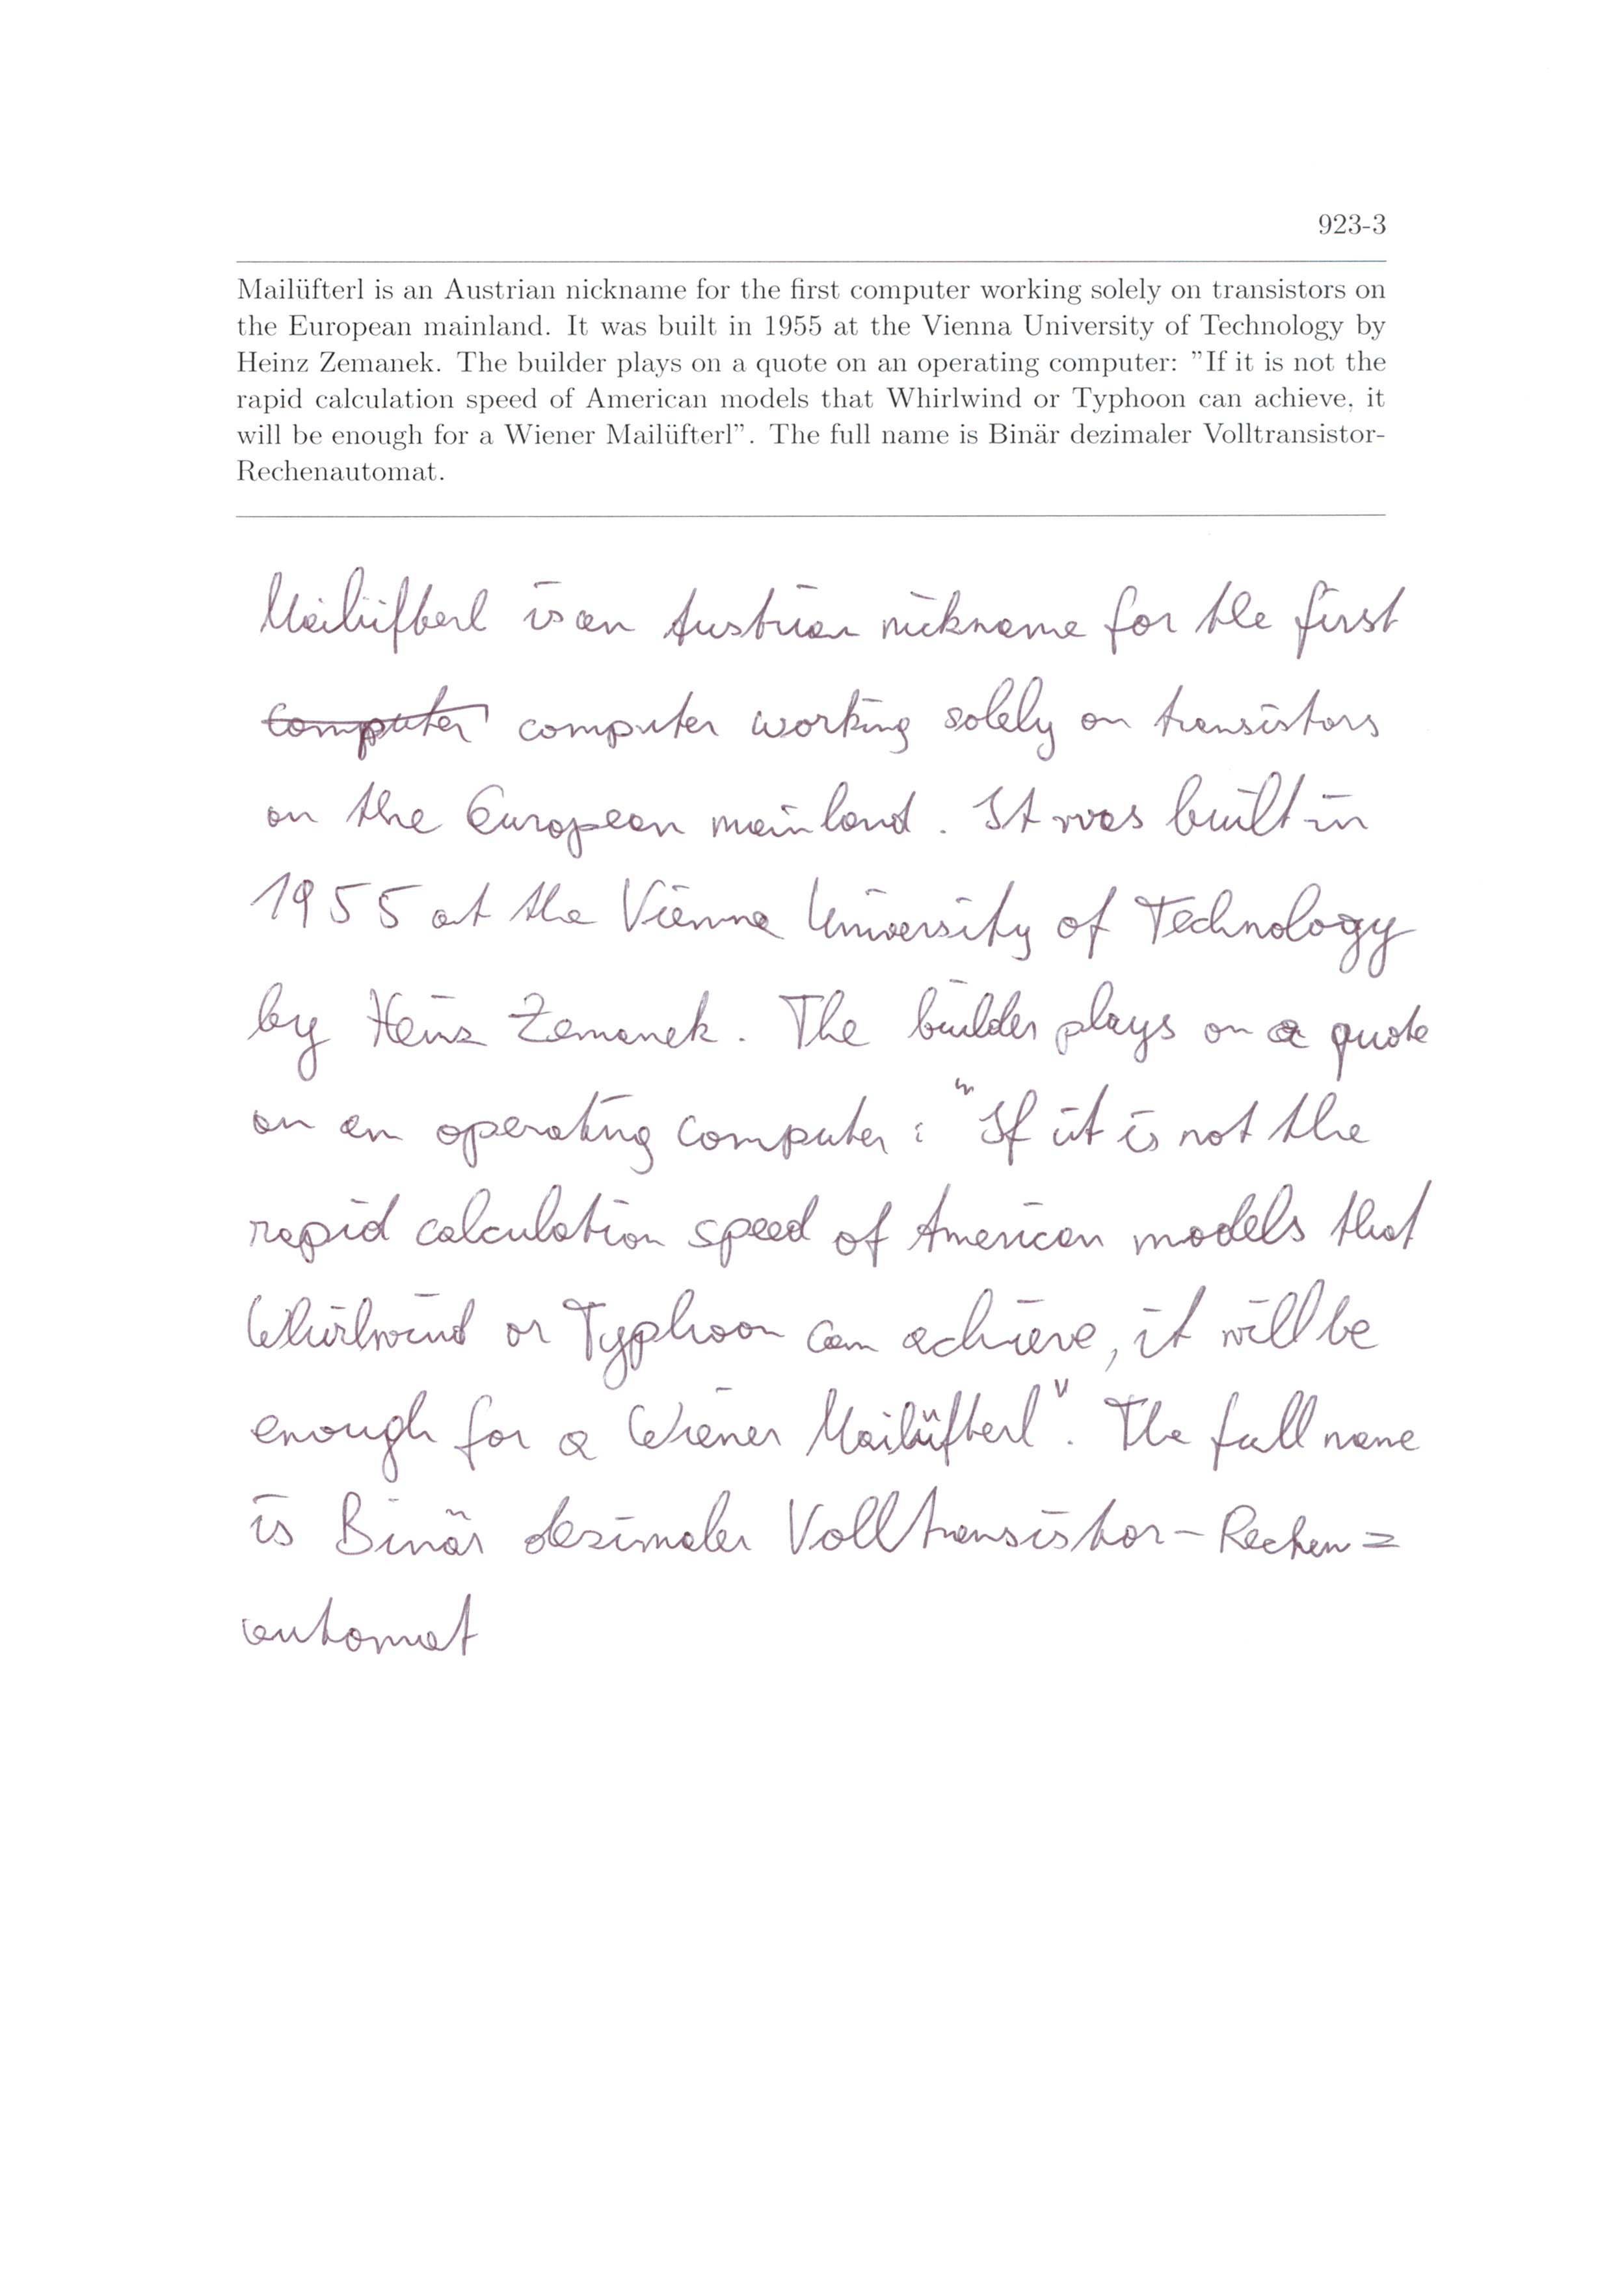 923-3
Mailüfterl is an Austrian nickname for the first computer working solely on transistors on
the European mainland. It was built in 1955 at the Vienna University of Technology by
Heinz Zemanek. The builder plays on a quote on an operating computer: "If it is not the
rapid calculation speed of American models that Whirlwind or Typhoon can achieve, it
will be enough for a Wiener Mailüfterl". The full name is Binär dezimaler Volltransistor-
Rechenautomat.
Mailüfterl is an Austrian nickname for the first
computer computer working solely on transistors
on the European mainland. It was built in
1955 at the Vienna University of Technology
by Heinz Zemanek. The builder plays on a quote
on an operating computer: "If it is not the
rapid calculation speed of American models that
Whirlwind or Typhoon can achieve, it will be
enough for a Wiener Mailüfterl". The full name
is Binär dezimaler Volltransistor-Rechen=
automat